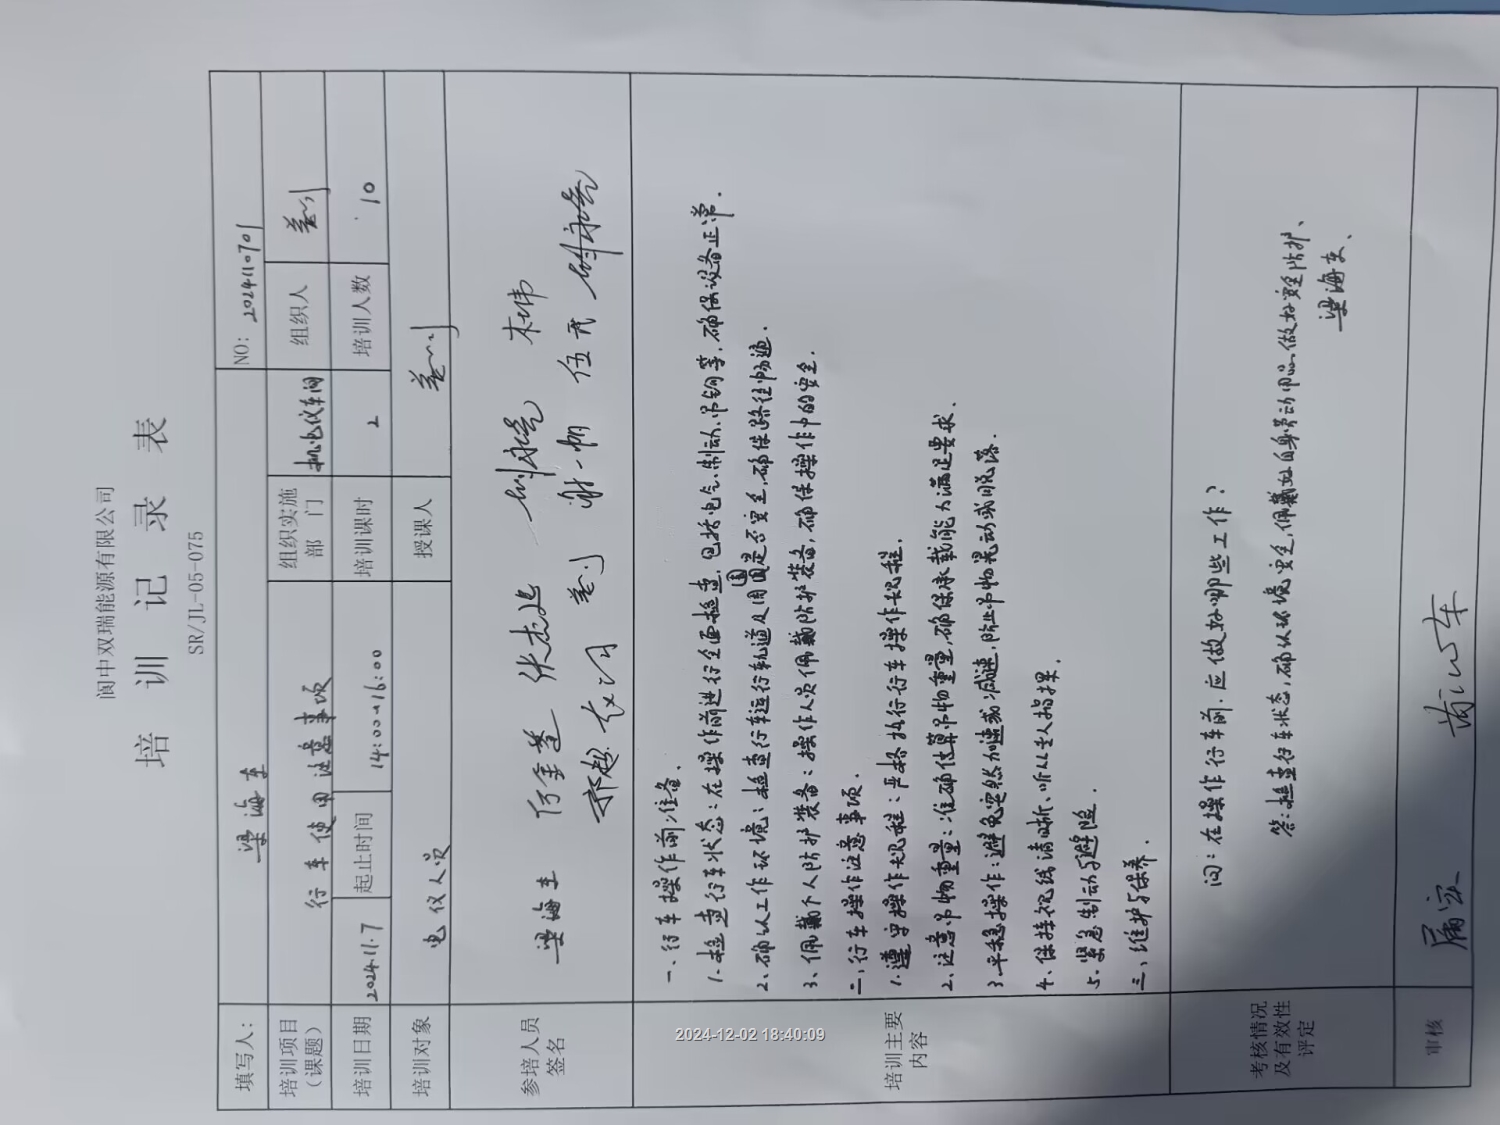 阆中双瑞能源有限公司
培训记录表
SR/JL-05-075
填写人： 梁海东 NO: 2024110701
培训项目（课题） 行车使用注意事项 组织实施部门 机电仪车间 组织人
培训日期 2024.11.7 起止时间 14:00~16:00 培训课时 2 培训人数 10
培训对象 电仪人员 授课人
参培人员签名 梁海东
培训主要内容
一、行车操作前准备.
1.检查行车状态:在操作前进行全面检查,包括电气、制动、吊钩等,确保设备正常.
2、确认工作环境:检查行车运行轨道及周围是否安全,确保路径畅通.
3、佩戴个人防护装备:操作人员佩戴防护装备,确保操作中的安全.
二,行车操作注意事项.
1.遵守操作规程:严格执行行车操作规程.
2、注意吊物重量:准确估算吊物重量,确保承载能力满足要求.
3.平稳操作:避免突然加速或减速,防止吊物晃动或脱落.
4、保持视线清晰、听从专人指挥.
5.紧急制动与避险.
三、维护与保养.
考核情况及有效性评定
问:在操作行车前.应做好哪些工作?
答:检查行车状态,确认环境安全,佩戴好自身劳动用品.做好安全防护、
梁海东、
审核
2024-12-02 18:40:09